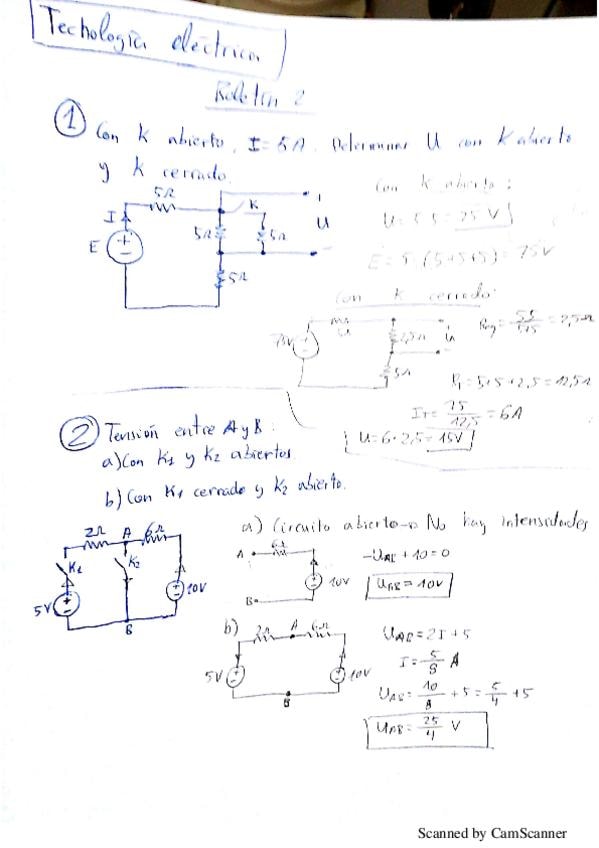 Techología eléctrica
Boletín 2
1 Con K abierto, I = 5A. Determinar U con K abierto
y K cerrado.
5Ω
I
E
5Ω
K
5Ω
U
5Ω
Con K abierto:
U = 5·5 = 25 V
E = 5·(5+5+5) = 75V
Con K cerrado:
75V
5Ω
2,5Ω
U
5Ω
Req = 5·5/5+5 = 2,5Ω
RT = 5+5+2,5 = 12,5Ω
IT = 75/12,5 = 6A
U = 6·2,5 = 15V
2 Tensión entre A y B:
a) Con K1 y K2 abiertos
b) Con K1 cerrado y K2 abierto.
2Ω A 6Ω
K1 K2
5V 10V
B
a) Circuito abierto → No hay intensidades
A 6Ω
10V
B
-UAB + 10 = 0
UAB = 10V
b) 2Ω A 6Ω
5V 10V
B
UAB = 2I + 5
I = 5/8 A
UAB = 10/8 + 5 = 5/4 + 5
UAB = 25/4 V
Scanned by CamScanner